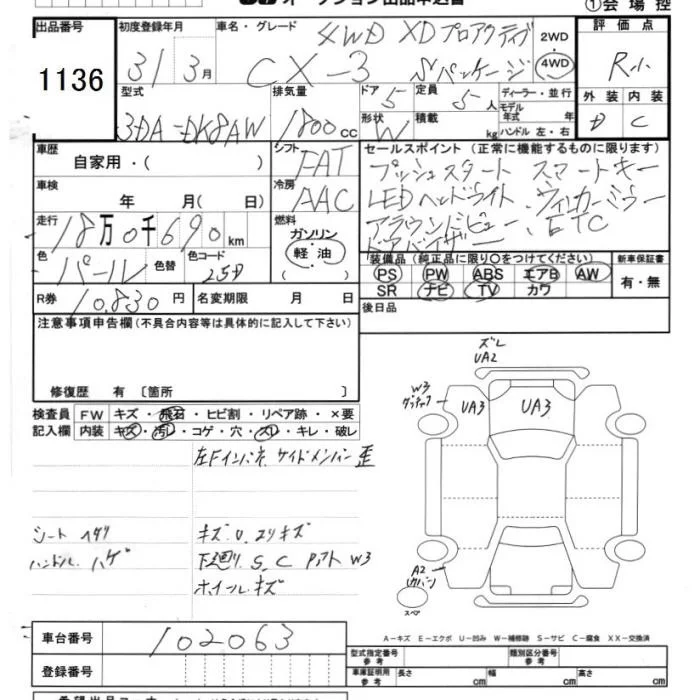 オークション出品申込書
①会場控
出品番号 1136
初度登録年月 31 3月
車名・グレード 4WD XDプロアクティブ
CX-3 Sパッケージ
2WD・4WD
評価点
R小
外装 内装
D C
型式 3DA-DK8AW
排気量 1800cc
ドア 5
定員 5人
ディーラー・並行
モデル年式 年
形状 W
積載 kg
ハンドル 左・右
車歴 自家用・( )
シフト FAT
車検 年 月( 日)
冷房 AAC
セールスポイント(正常に機能するものに限ります)
プッシュスタート スマートキー
LEDヘッドライト、ウィンカーミラー
アラウンドビュー、ETC
ドアバイザー
走行 18万0千690km
燃料 ガソリン・軽油 ( )
色 パール
色替
色コード 25D
装備品(純正品に限り○をつけてください)
新車保証書
PS PW ABS エアB AW
SR ナビ TV カワ
有・無
R券 10,830円
名変期限 月 日
後日品
注意事項申告欄(不具合内容等は具体的に記入して下さい)
修復歴 有 〔箇所 〕
検査員記入欄
FW キズ・飛石・ヒビ割・リペア跡・×要
内装 キズ・汚レ・コゲ・穴・スレ・キレ・破レ
左Fインパネ、サイドメンバー歪
シート ヘタリ
キズ、U、エクリキズ
ハンドル ハゲ
下廻り、S、C Pアト W3
ホイールキズ
ズレ
UA2
W3
UA3
UA3
A2
スペア
車台番号 102063
登録番号
A-キズ E-エクボ U-凹み W-補修跡 S-サビ C-腐食 XX-交換済
型式指定番号 参考
類別区分番号 参考
車庫証明用 参考
長さ cm
幅 cm
高さ cm
希望出品コーナー